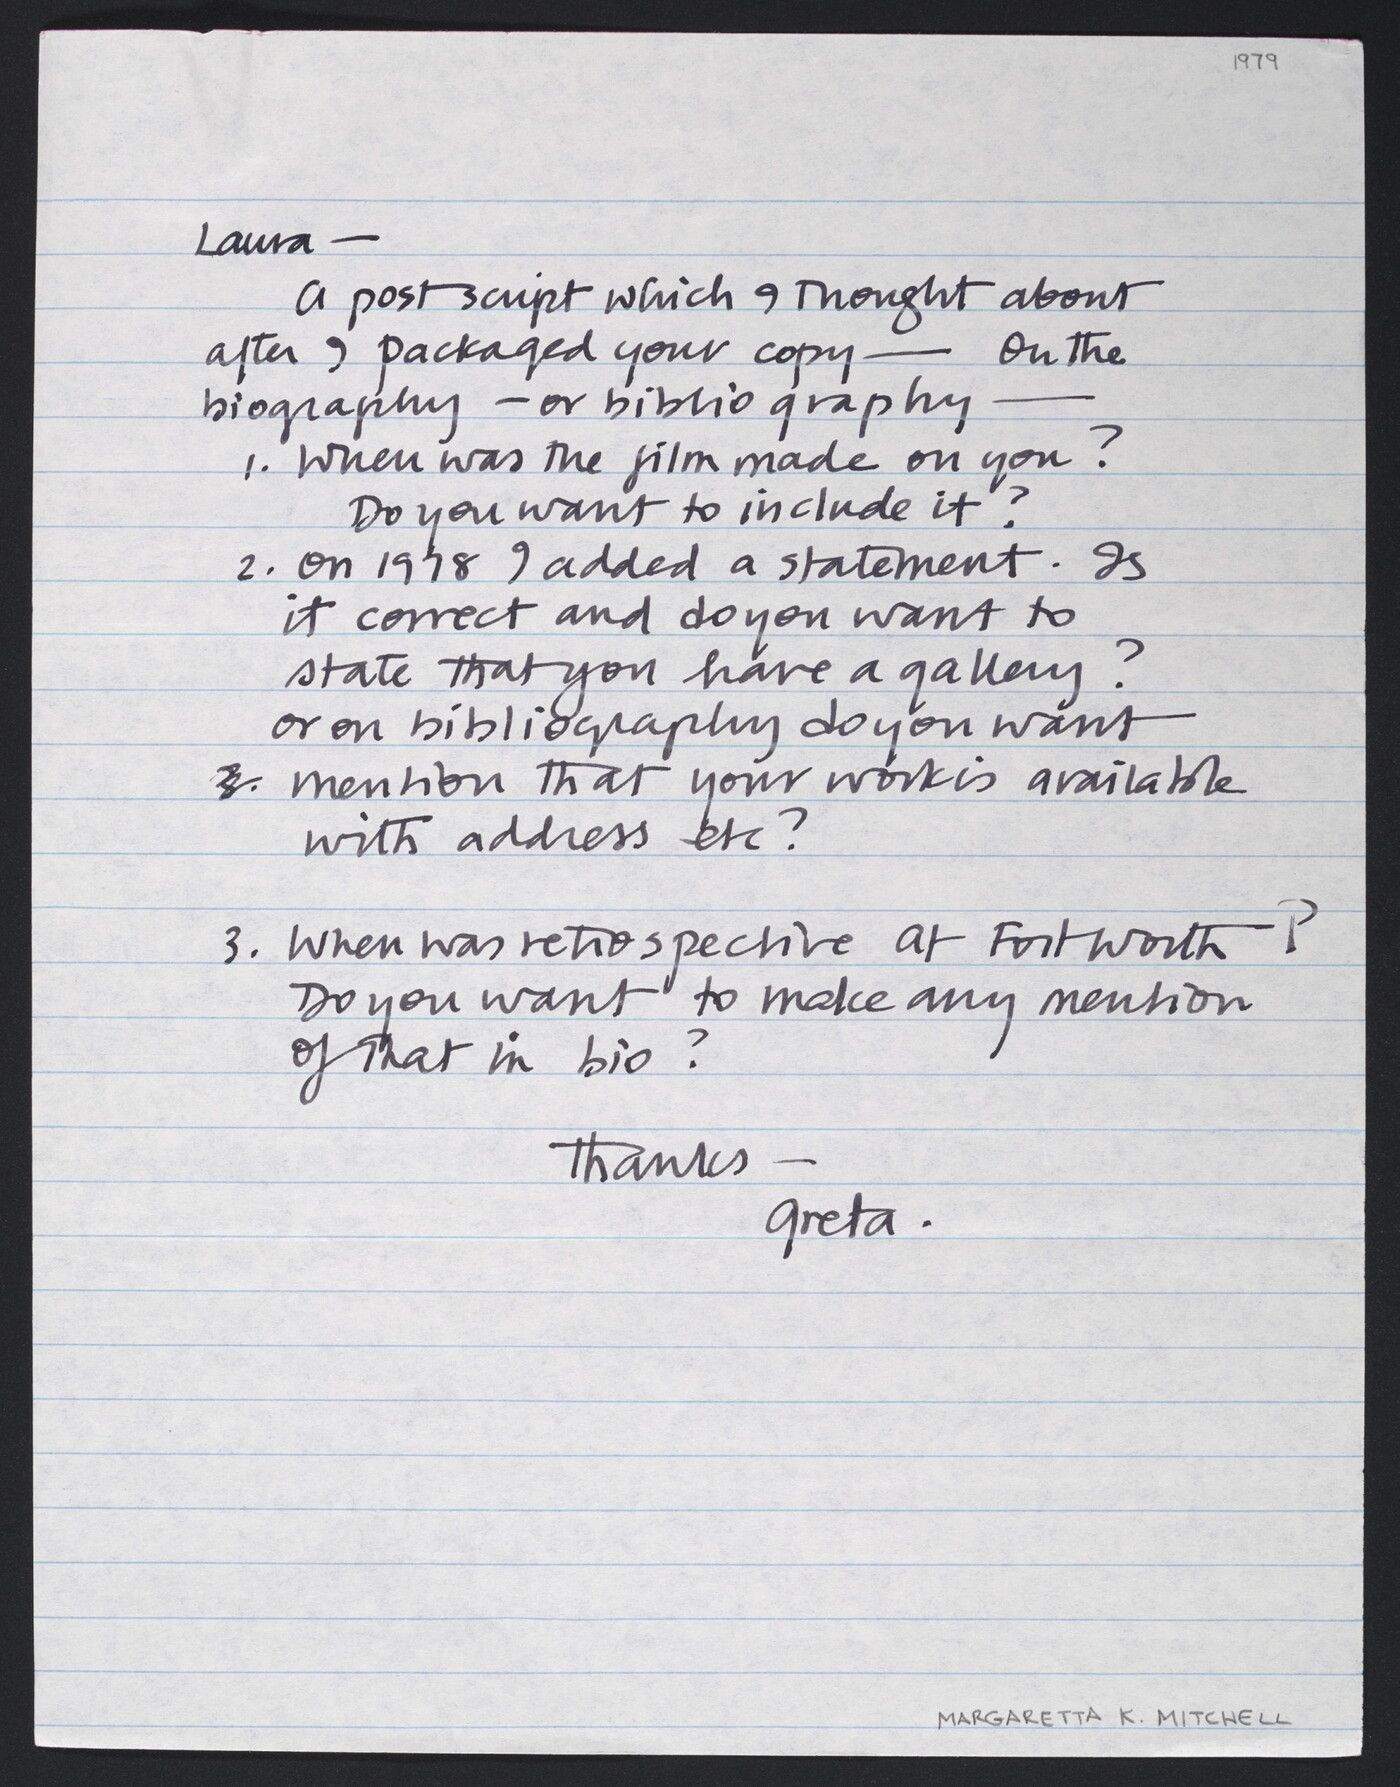 1979
Laura —
A post script which I thought about
after I packaged your copy — On the
biography — or bibliography —
1. When was the film made on you?
Do you want to include it?
2. On 1978 I added a statement. Is
it correct and do you want to
state that you have a gallery?
or on bibliography do you want
3. mention that your work is available
with address etc?
3. When was retrospective at Fort Worth — ?
Do you want to make any mention
of that in bio?
Thanks —
Greta.
MARGARETTA K. MITCHELL